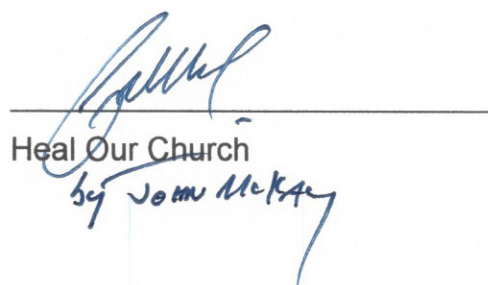 Heal Our Church
by JOHN McKAY